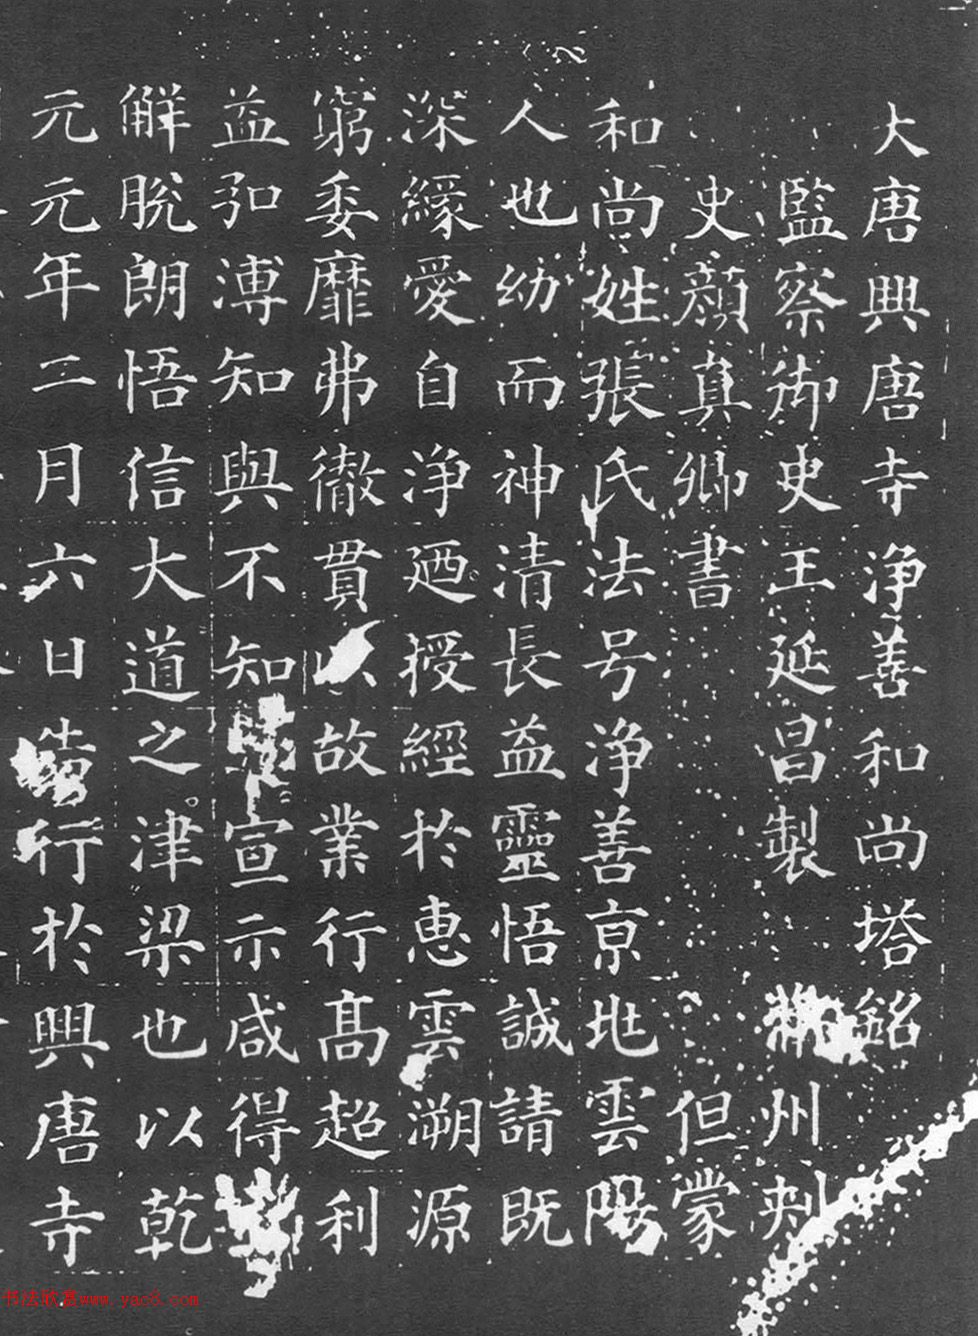 大唐興唐寺净善和尚塔銘
監察御史王延昌製 州刺
史顔真卿書 但蒙
和尚姓張氏法号净善京地雲陽
人也幼而神清長益靈悟誠請既
深緣愛自净迺授經於惠雲溯源
窮委靡弗徹貫以故業行高超利
益弘溥知與不知 宣示咸得
解脱朗悟信大道之津梁也以乾
元元年二月六日造行於興唐寺
书法欣赏www.yac8.com